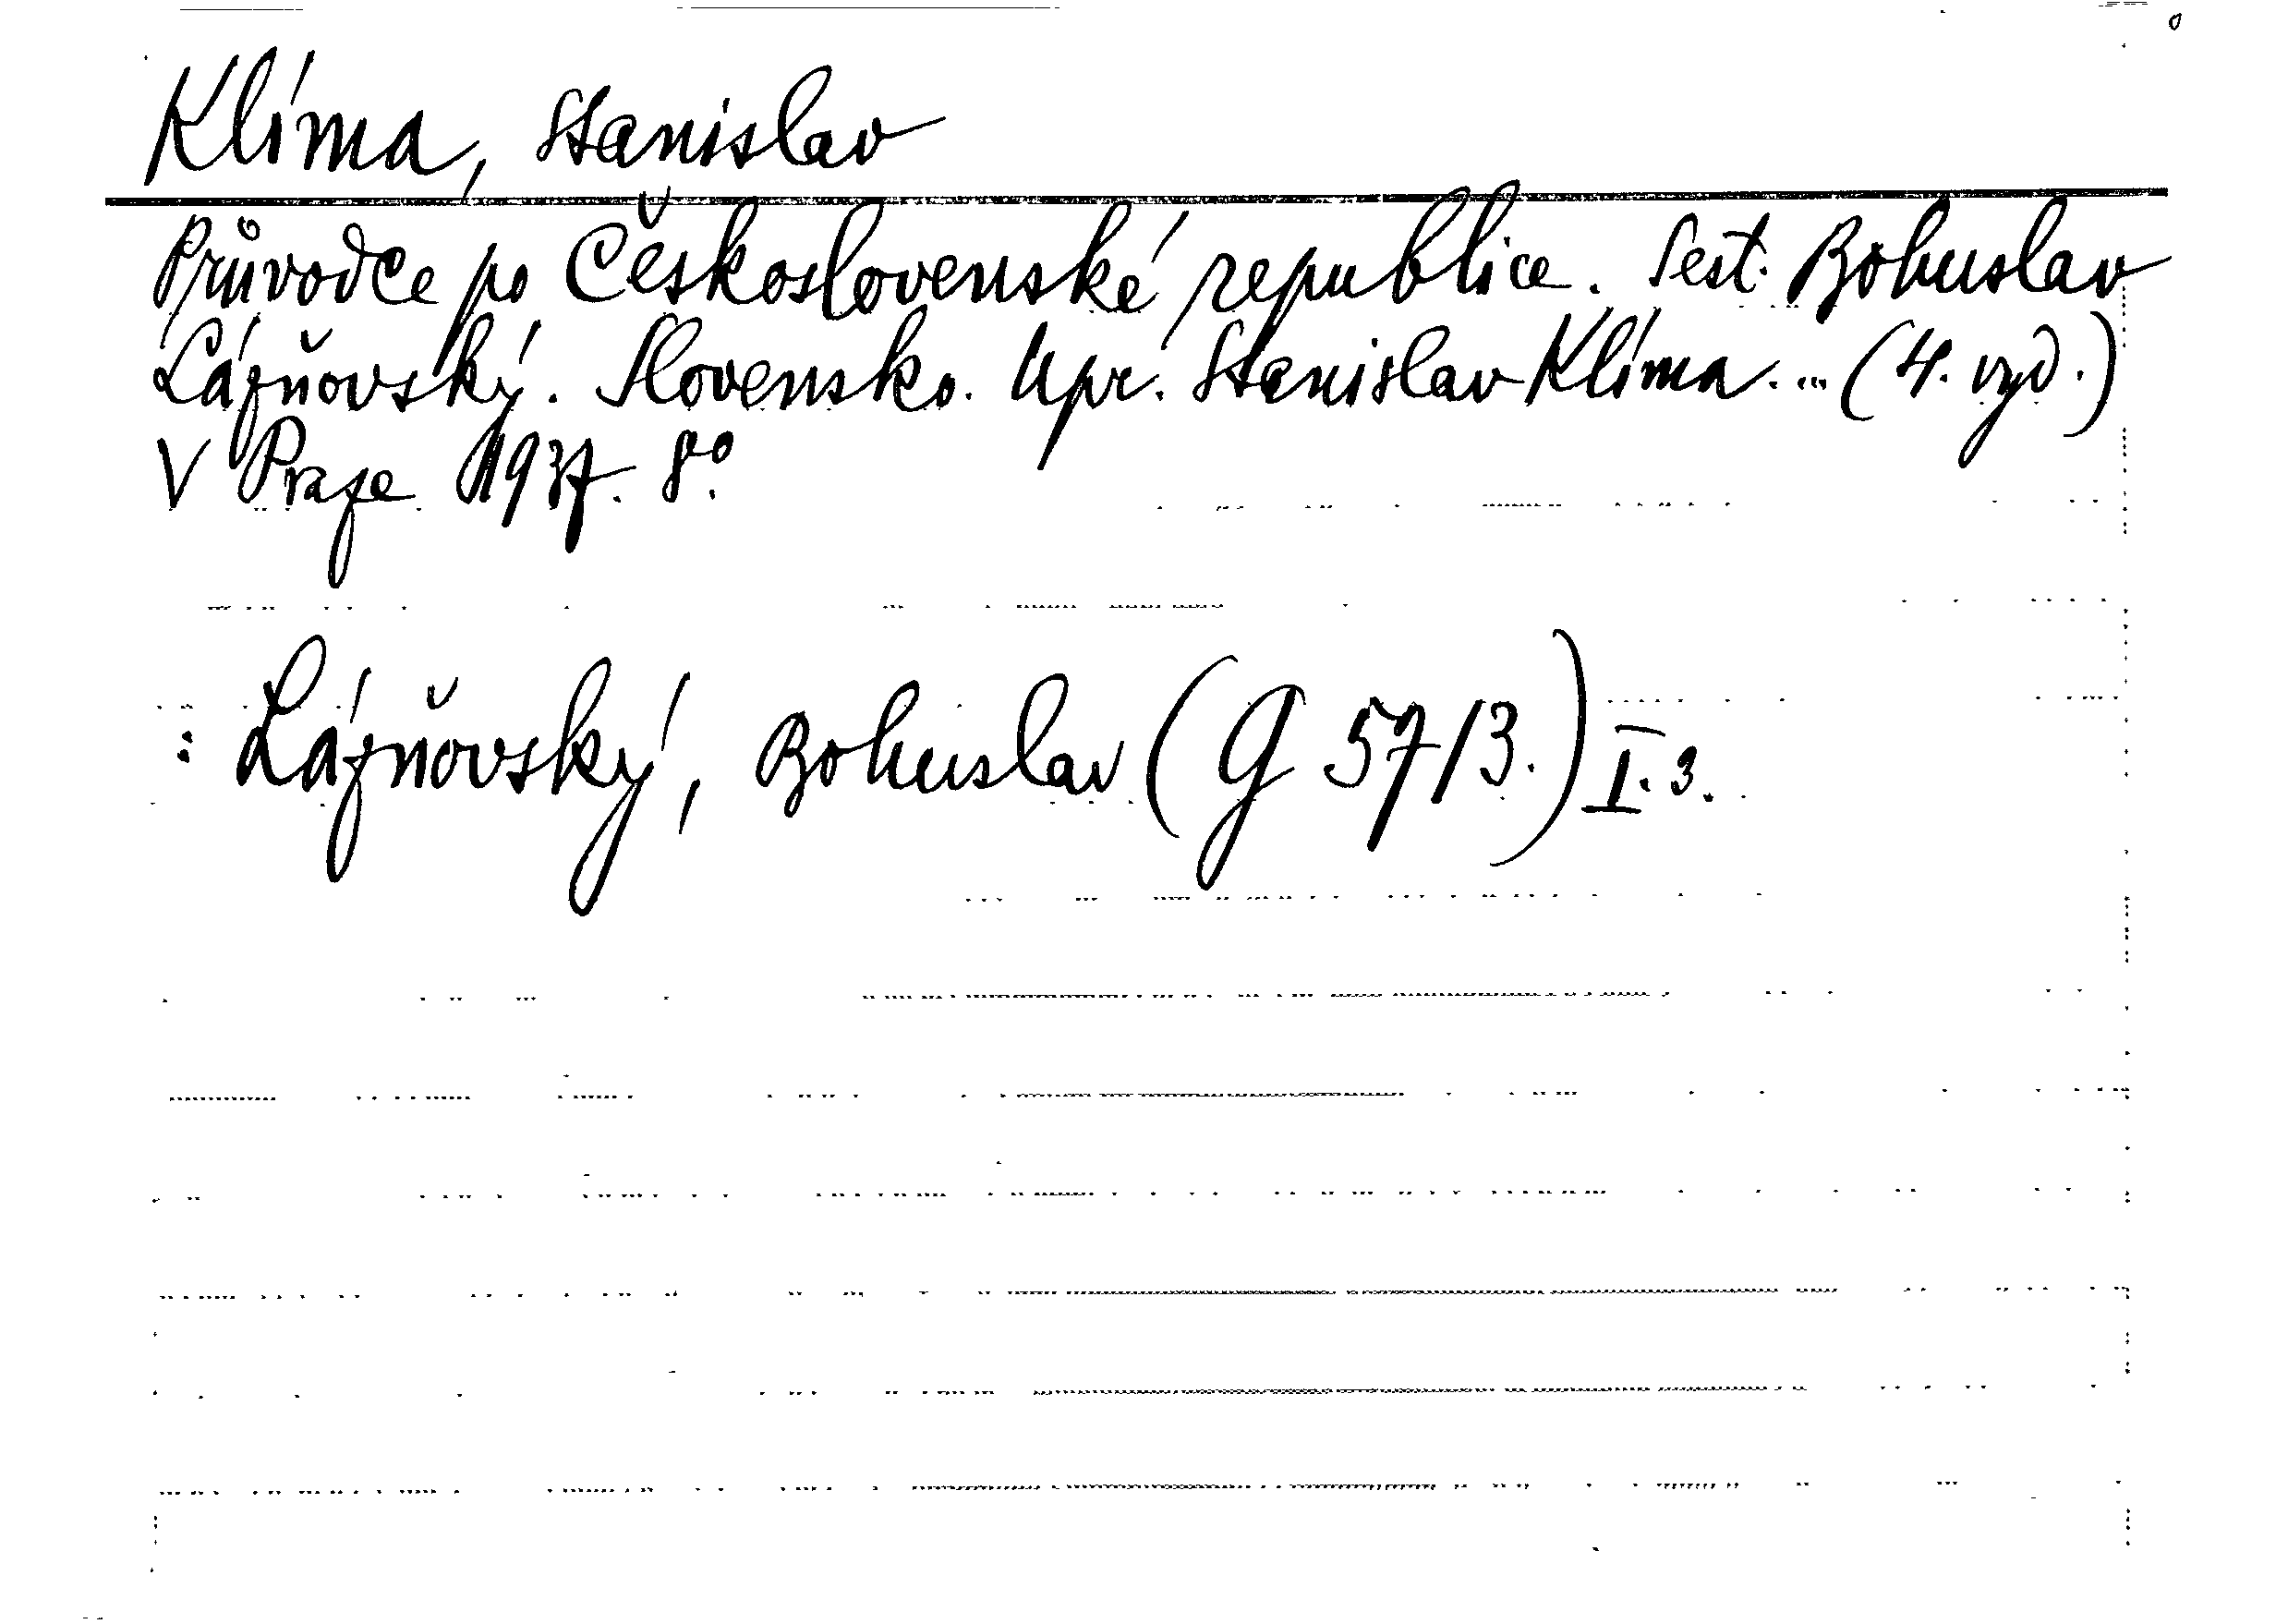 Klíma, Stanislav
Průvodce po Československé republice. Sest. Bohuslav
Lázňovský. Slovensko. Upr. Stanislav Klíma... (4. vyd.)
V Praze 1937. 8°.
: Lázňovský, Bohuslav (G 57/3.) I.3.